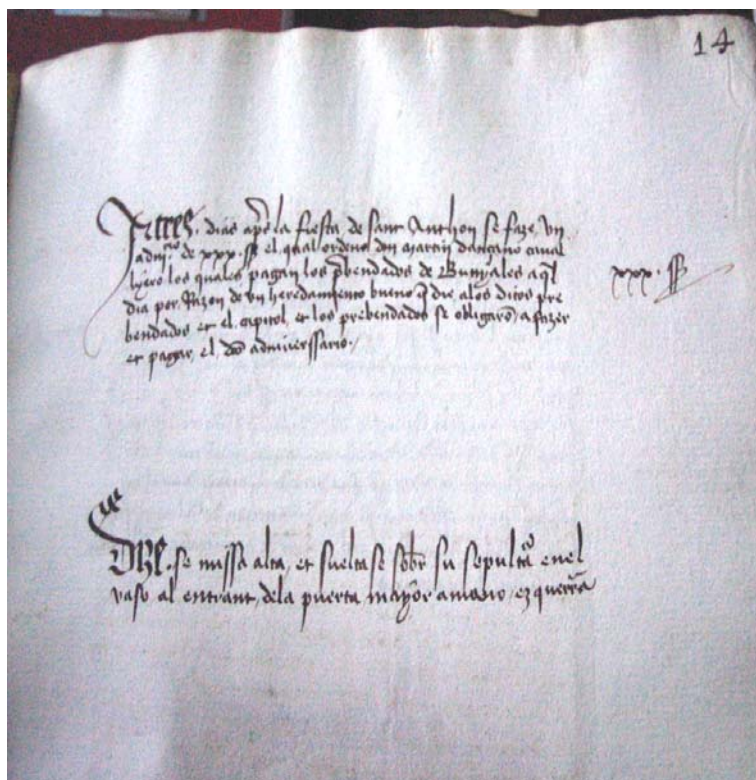 14
A tres dias apres la fiesta de Sant Anthon se faze un
adni.º de xxx ss el qual ordeno don martin cavall
lyero los quales pagan los pbendados de a ql
dia por Razon de vn heredamiento bueno q die alos ditos pre
bendados et el capitol et los prebendados se obligarō a fazer
et pagar el dō adniverssario
xxx ss
Dize se missa alta et sueltase sobr su sepultā enel
vaso al entrant dela puerta mayor amano ezquerrā